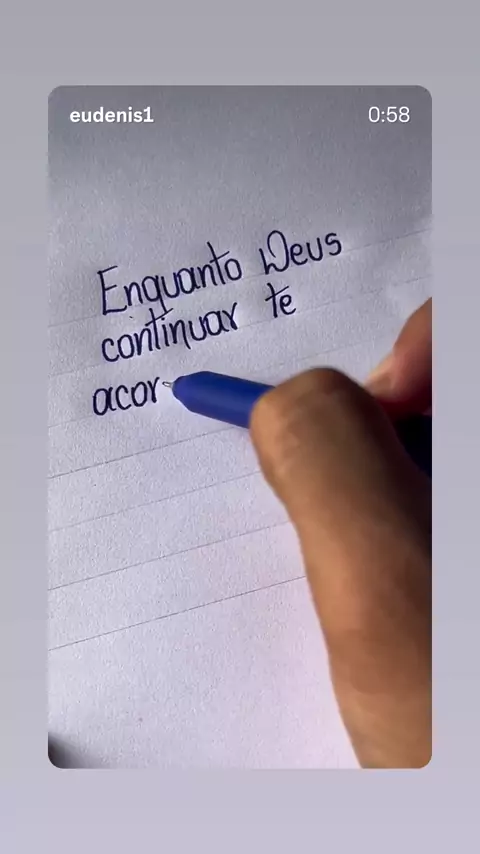 eudenis1
0:58
Enquanto Deus
continuar te
acor